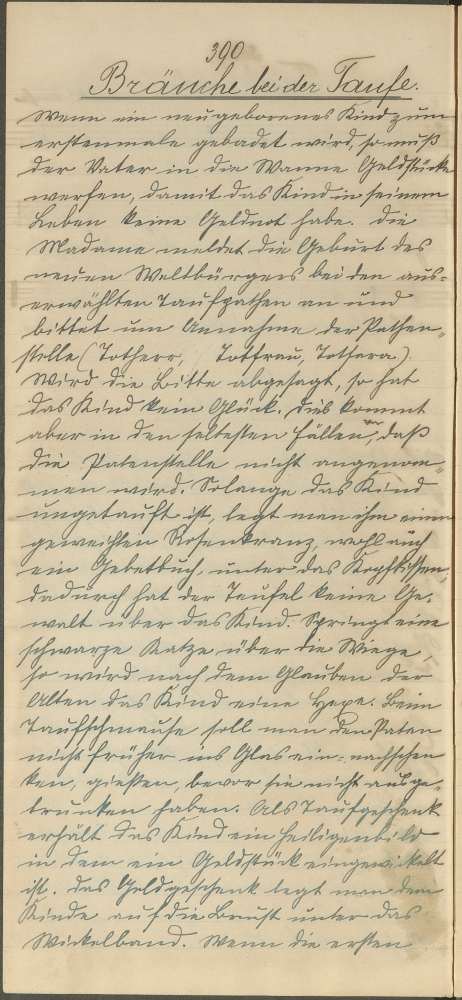 390
Bräuche bei der Taufe.
Wenn ein neugeborenes Kind zum
erstenmale gebadet wird, so muß
der Vater in die Wanne Geldstücke
werfen, damit das Kind in seinem
Leben keine Geldnot habe. Die
Madame meldet die Geburt des
neuen Weltbürgers bei den aus-
erwählten Taufpathen an und
bittet um Annahme der Pathen-
stelle (Totherr, Totfrau,
Wird die Bitte abgesagt, so hat
das Kind kein Glück. Dies kommt
aber in den seltesten Fällen vor, daß
die Patenstelle nicht angenom-
men wird. Solange das Kind
ungetauft ist, legt man ihm einen
geweihten Rosenkranz, wohl auch
ein Gebetbuch, unter das Kopfkissen,
dadurch hat der Teufel keine Ge-
walt über das Kind. Springt eine
schwarze Katze über die Wiege,
so wird nach dem Glauben der
Alten das Kind eine Hexe. Beim
Taufschmause soll man den Paten
nicht früher ins Glas ein-, nachschen
ken, gießen, bevor sie nicht ausge-
trunken haben. Als Taufgeschenk
erhält das Kind ein Heiligenbild
in dem ein Geldstück eingewickelt
ist. Das Geldgeschenk legt man dem
Kinde auf die Brust unter das
Wickelband. Wenn die ersten